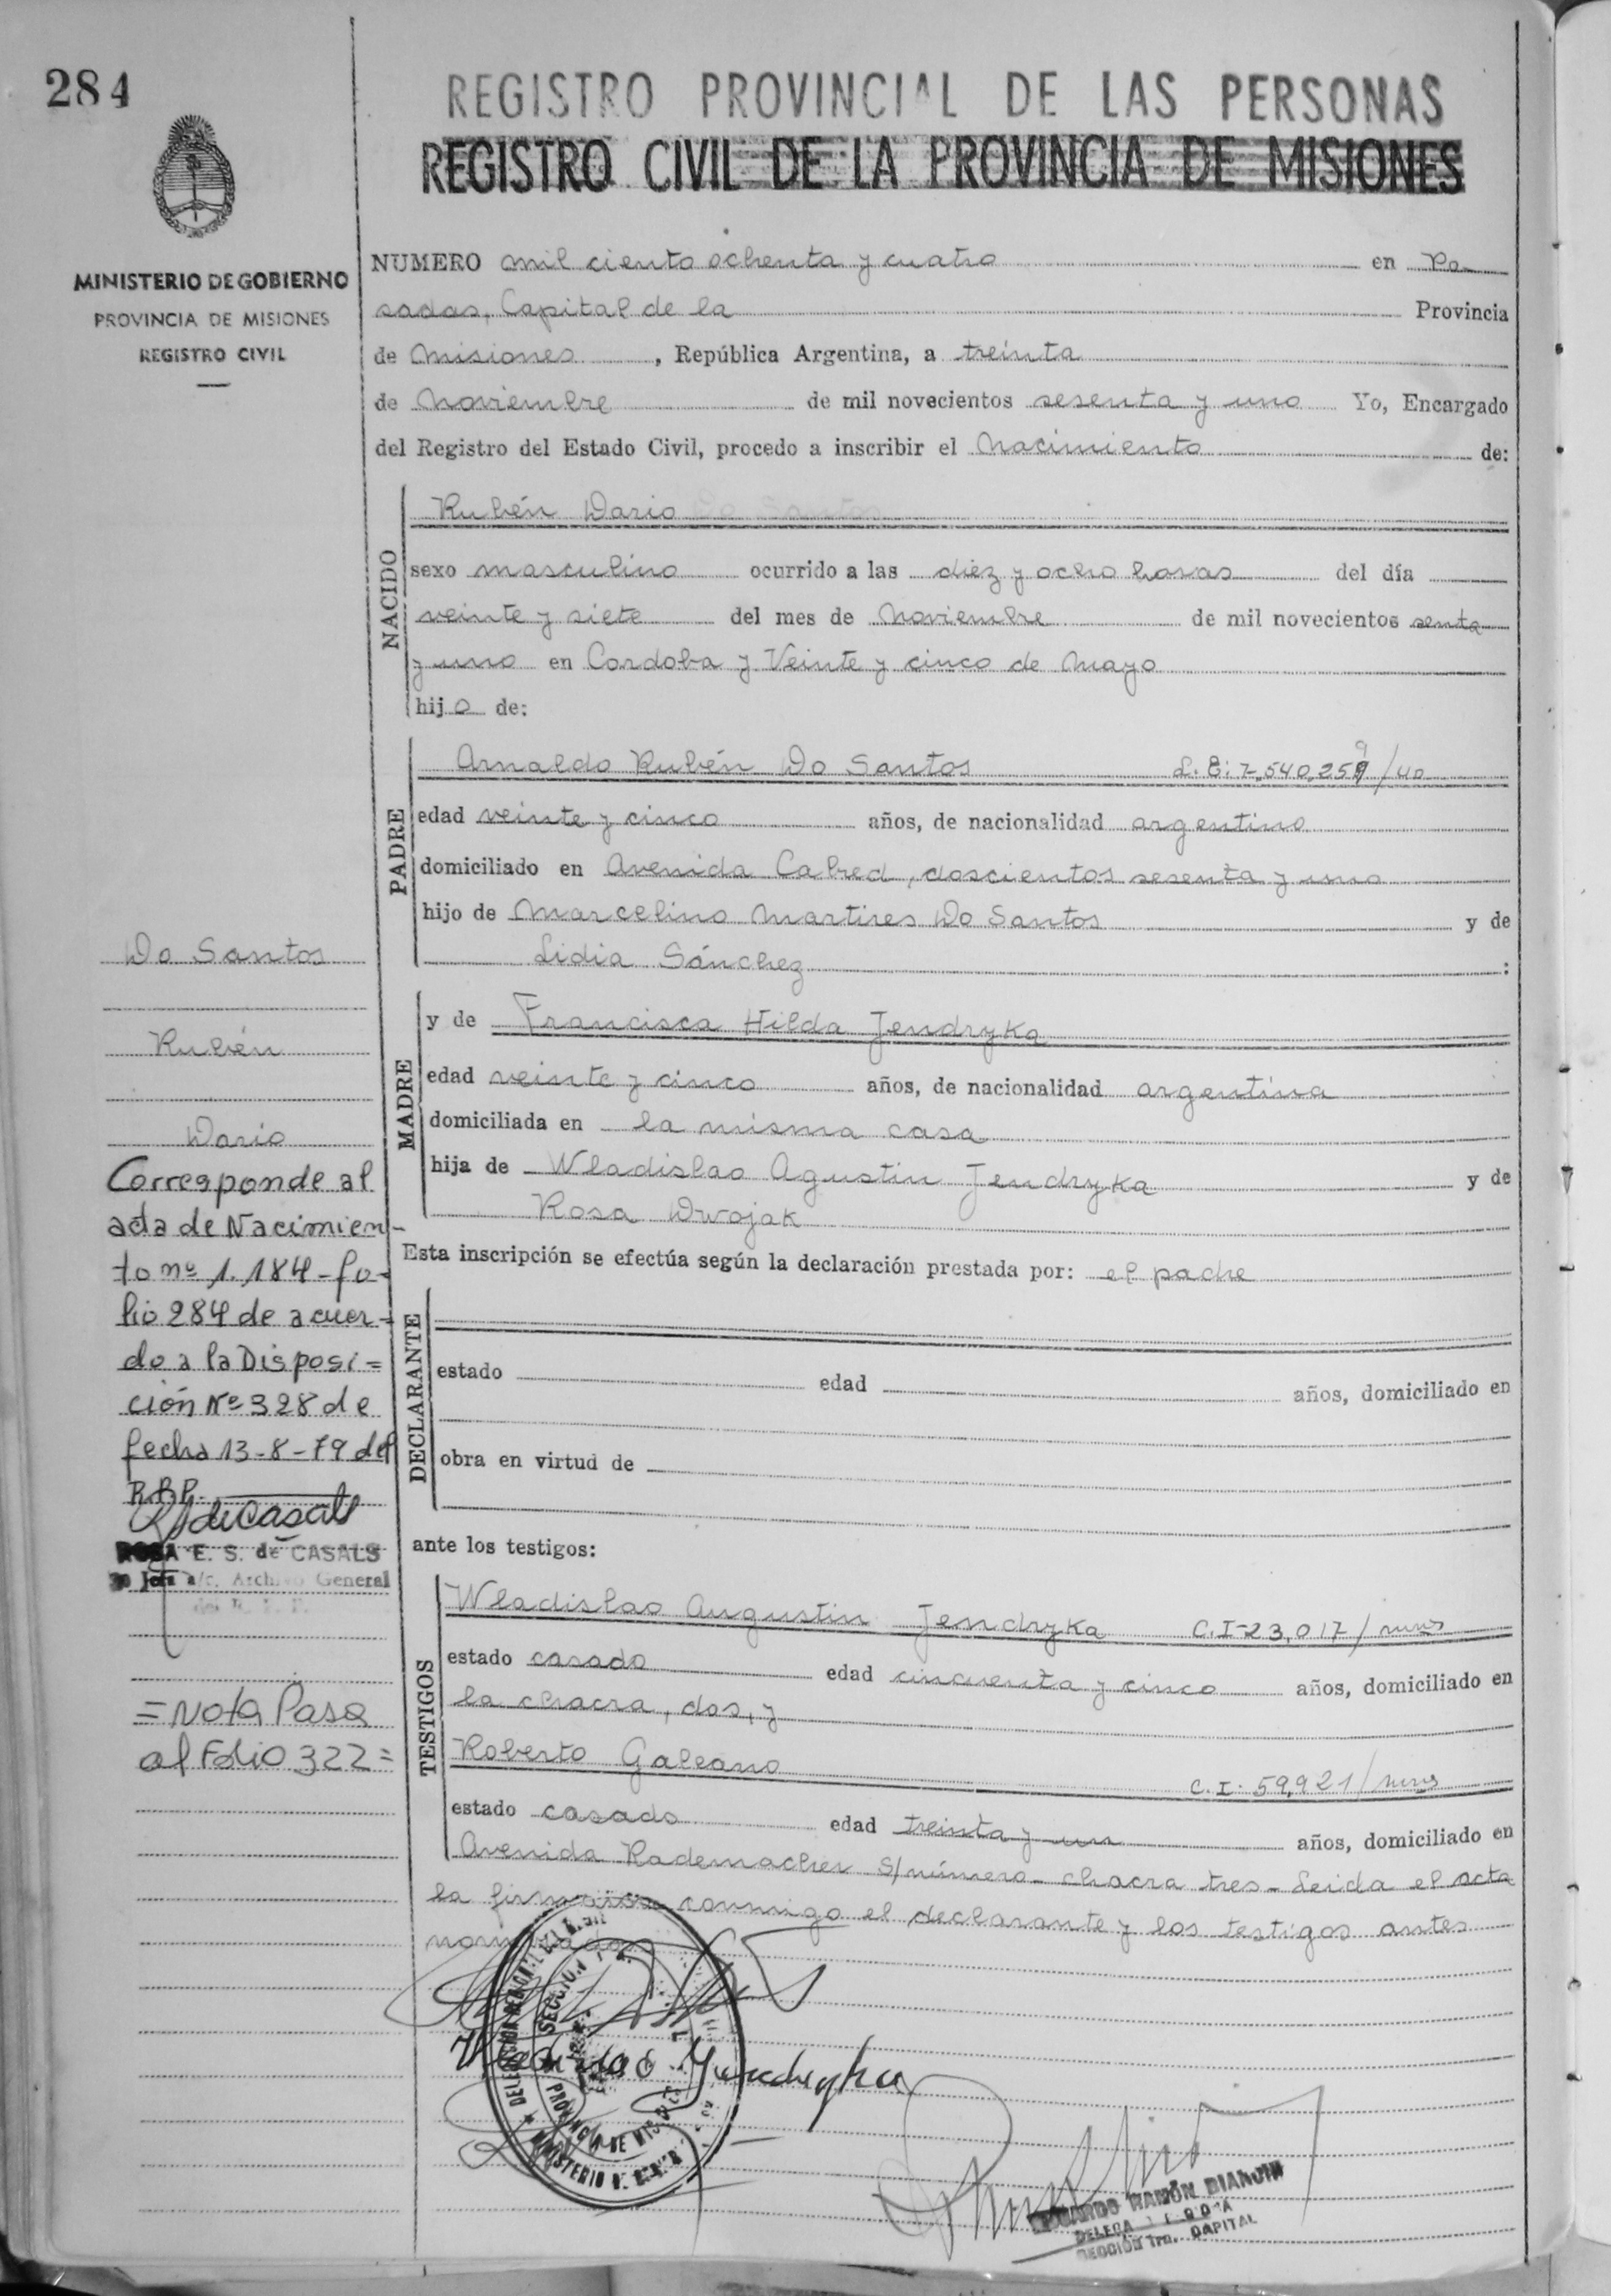 284
REGISTRO PROVINCIAL DE LAS PERSONAS
REGISTRO CIVIL DE LA PROVINCIA DE MISIONES
MINISTERIO DE GOBIERNO
PROVINCIA DE MISIONES
REGISTRO CIVIL
NUMERO mil ciento ochenta y cuatro en Po
sadas, Capital de la Provincia
de Misiones, República Argentina, a treinta
de Noviembre de mil novecientos sesenta y uno Yo, Encargado
del Registro del Estado Civil, procedo a inscribir el Nacimiento de:
NACIDO
Rubén Dario
sexo masculino ocurrido a las diez y ocho horas del día
veinte y siete del mes de Noviembre de mil novecientos senta
y uno en Cordoba y Veinte y cinco de Mayo
hijo de:
PADRE
Arnaldo Rubén Do Santos L.E: 7.540.259/
edad veinte y cinco años, de nacionalidad argentino
domiciliado en Avenida Cabred, doscientos sesenta y uno
hijo de Marcelino Martires Do Santos y de
Lidia Sánchez :
MADRE
y de Francisca Hilda Jendryka
edad veinte y cinco años, de nacionalidad argentina
domiciliada en la misma casa
hija de Wladislao Agustin Jendryka y de
Rosa Dwojak
Esta inscripción se efectúa según la declaración prestada por: el padre
DECLARANTE
estado edad años, domiciliado en
obra en virtud de
ante los testigos:
TESTIGOS
Wladislao Augustin Jendryka C.I-23,017/
estado casado edad cincuenta y cinco años, domiciliado en
la chacra, dos, y
Roberto Galeano C.I. 59,921/
estado casado edad treinta y un años, domiciliado en
Avenida Rademacher S/número- chacra tres- Leida el acta
la firma conmigo el declarante y los testigos antes
Wladislao Jendryka
DELEGACION
SECCION
PROVINCIA DE MISIONES
MINISTERIO
EDUARDO RAMÓN
SECCIÓN 1ra. CAPITAL
Do Santos
Rubén
Dario
Corresponde al
acta de Nacimien-
to nº 1.184-fo-
lio 284 de acuer-
do a la Disposi=
ción Nº 328 de
fecha 13-8-79 del
R.P.P.
ROSA E. S. de CASALS
Jefa a/c. Archivo General
=Nota Pasa
al Folio 322=